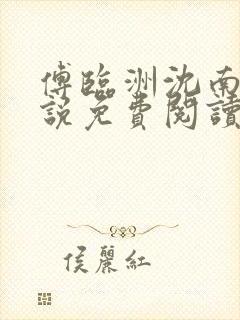 傅臨洲沈南
說免費閱讀
侯麗紅